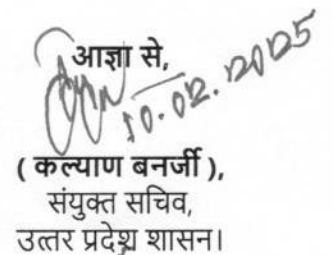 आज्ञा से,
10.02.2025
( कल्याण बनर्जी ),
संयुक्त सचिव,
उत्तर प्रदेश शासन।